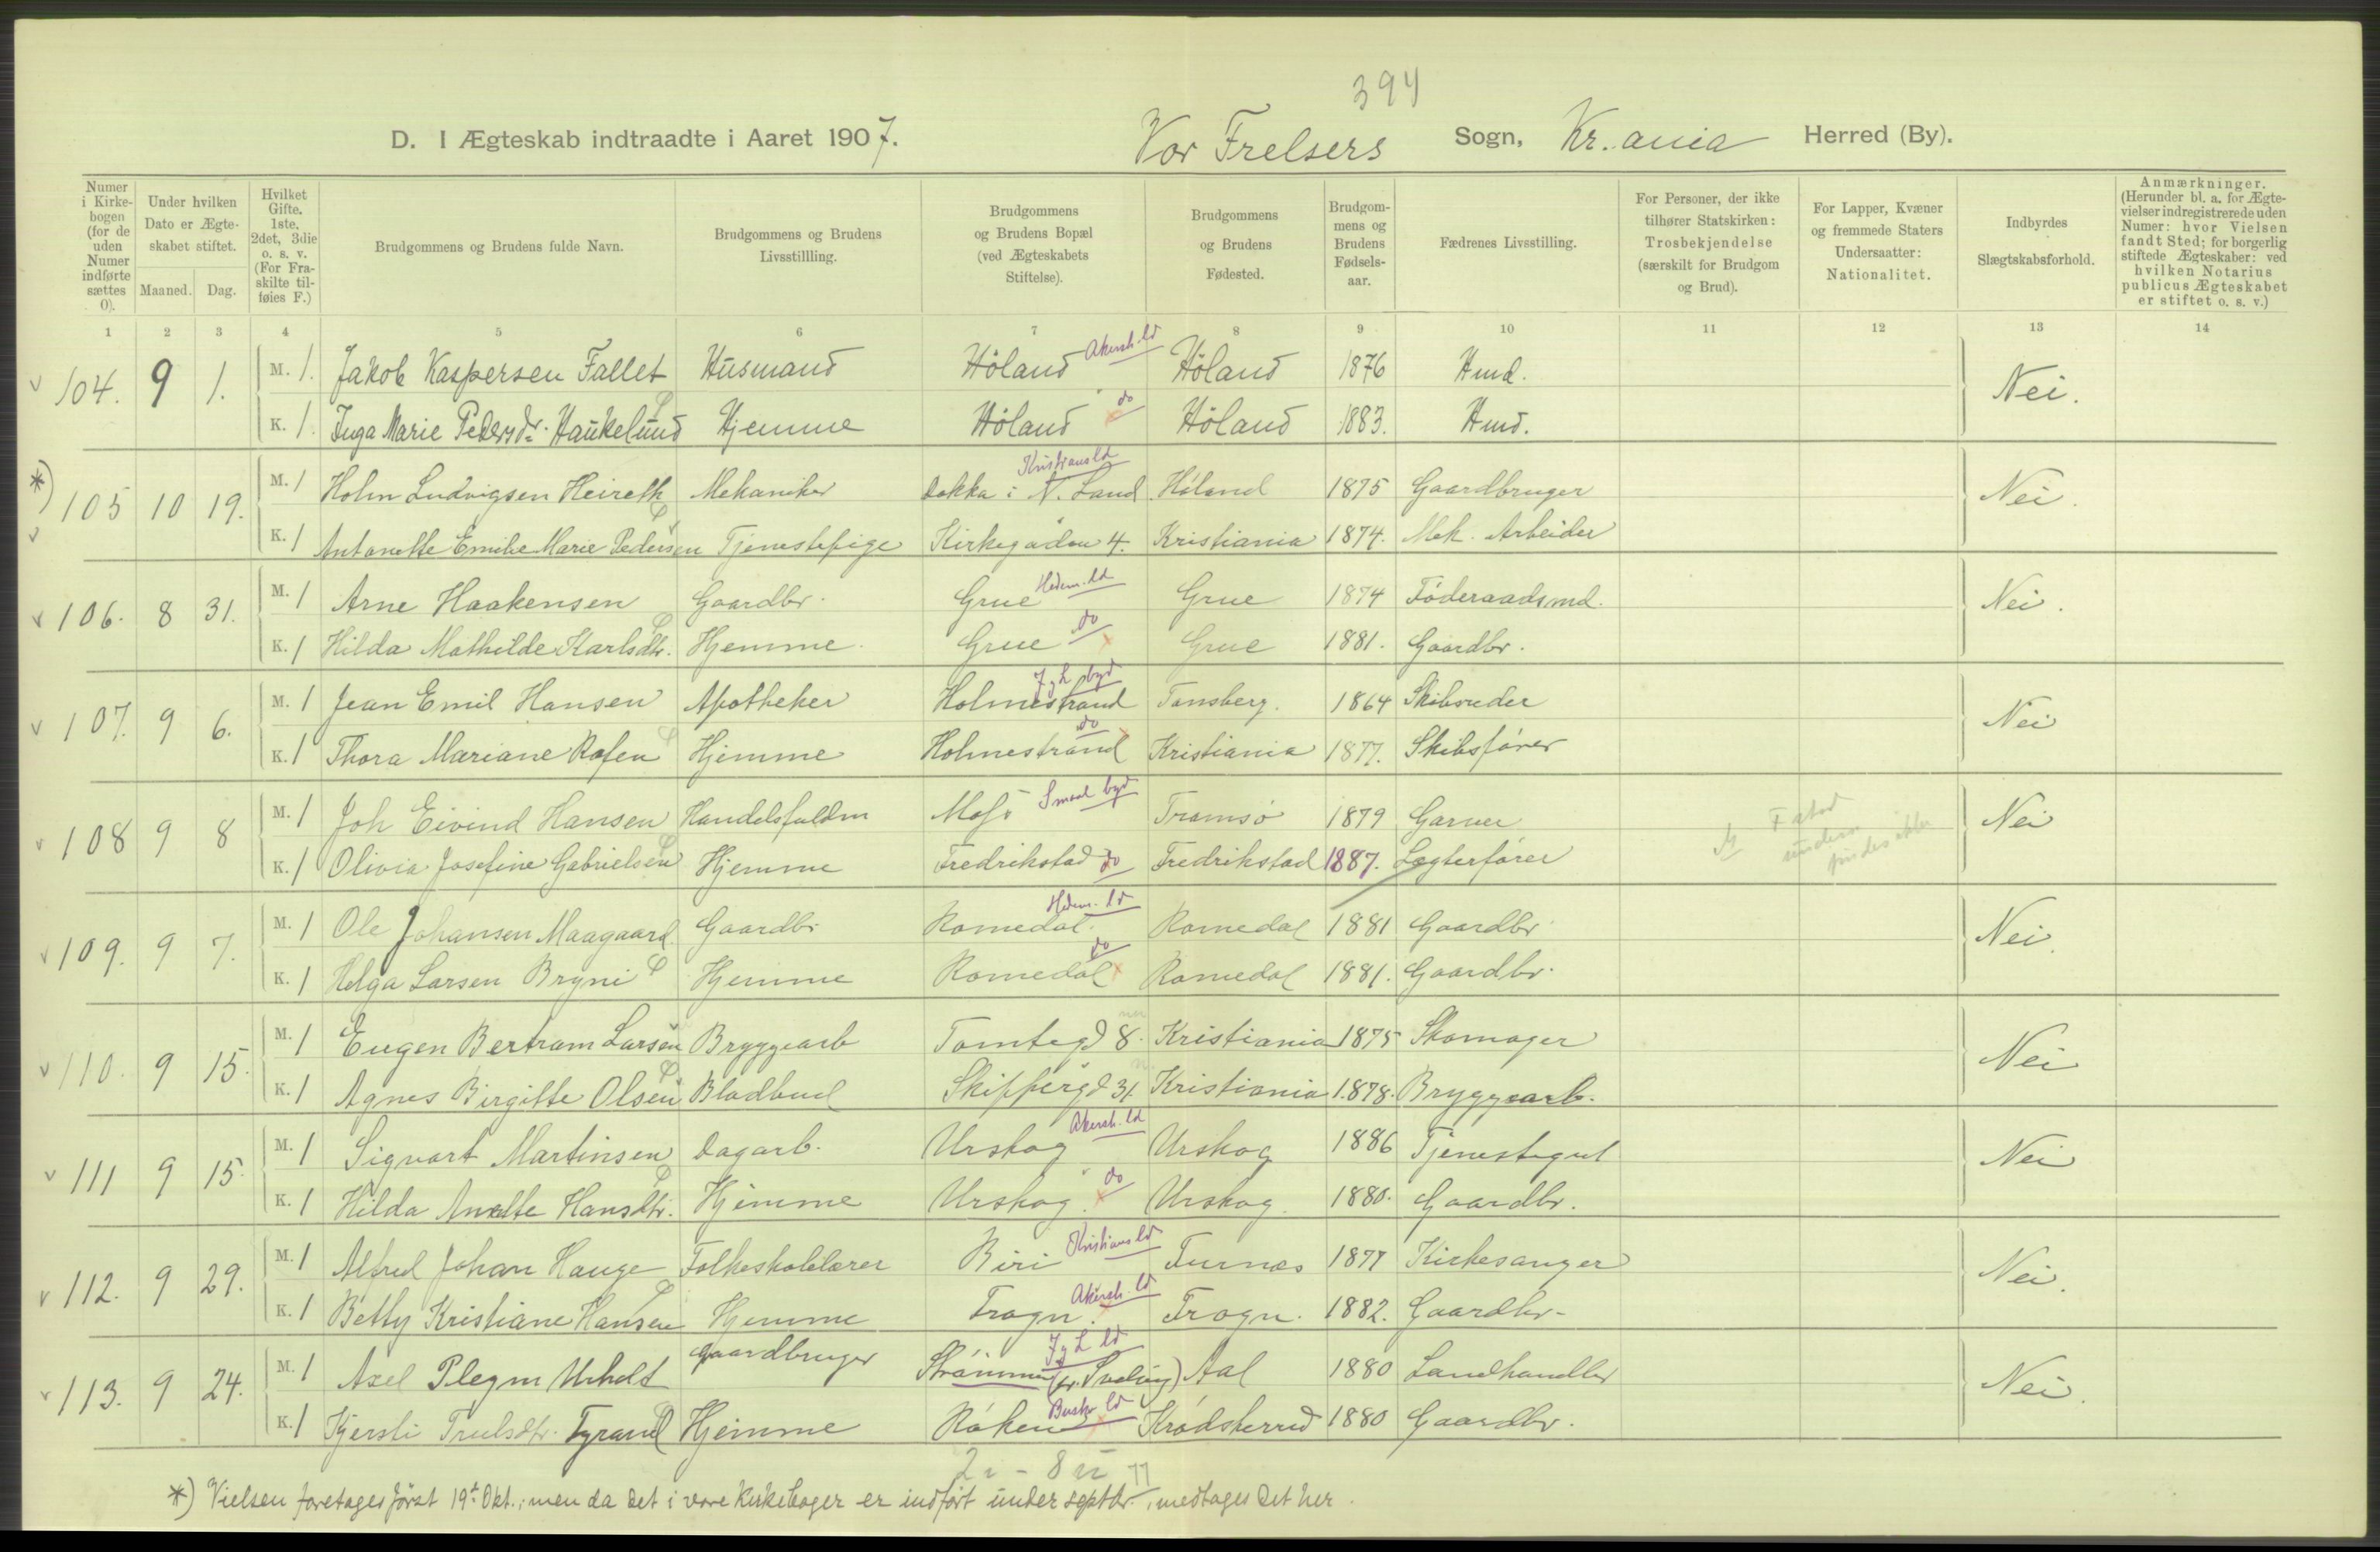 394
D. I Ægteskab indtraadte i Aaret 1907. Vor Frelsers Sogn, Kr.ania Herred (By).
Numer i Kirkebogen (for de uden Numer indførte sættes 0).
Under hvilken Dato er Ægteskabet stiftet.
Maaned. Dag.
Hvilket Gifte. 1ste, 2det, 3die o. s. v. (For Fraskilte tilføies F.)
Brudgommens og Brudens fulde Navn.
Brudgommens og Brudens Livsstillling.
Brudgommens og Brudens Bopæl (ved Ægteskabets Stiftelse).
Brudgommens og Brudens Fødested.
Brudgommens og Brudens Fødselsaar.
Fædrenes Livsstilling.
For Personer, der ikke tilhører Statskirken: Trosbekjendelse (særskilt for Brudgom og Brud).
For Lapper, Kvæner og fremmede Staters Undersaatter: Nationalitet.
Indbyrdes Slægtskabsforhold.
Anmærkninger. (Herunder bl. a. for Ægtevielser indregistrerede uden Numer: hvor Vielsen fandt Sted; for borgerlig stiftede Ægteskaber: ved hvilken Notarius publicus Ægteskabet er stiftet o. s. v.)
1 2 3 4 5 6 7 8 9 10 11 12 13 14
v 104. 9 1. M. 1. Jakob Kaspersen Fallet Husmand Høland Akersh. ld Høland 1876 Hmd. Nei.
K. 1. Inga Marie Pedersdr. Haukelund Hjemme Høland do Høland 1883. Hmd.
*) 105 10 19. M. 1 Holm Ludvigsen Heireth Mekaniker Dokka i N. Land Kristians ld Høland 1875 Gaardbruger Nei.
v K. 1 Antonette Emilie Marie Pedersen Tjenestepige Kirkegaden 4. Kristiania 1874. Mek. Arbeider
v 106. 8 31. M. 1 Arne Haakensen Gaardbr. Grue Hedem. ld Grue 1874 Føderaadsmd. Nei.
K. 1 Hilda Mathilde Karlsdtr. Hjemme. Grue do Grue 1881. Gaardbr.
v 107. 9 6. M. 1 Jean Emil Hansen Apotheker Holmestrand J & L byd Tønsberg. 1864 Skibsreder Nei
K. 1 Thora Mariane Rafen Hjemme Holmestrand do Kristiania 1877. Skibsfører
v 108 9 8 M. 1 Joh Eivind Hansen Handelsfuldm Moss Smaal byd Tromsø 1879 Garver Nei
K. 1 Olivia Josefine Gabrielsen Hjemme Fredrikstad do Fredrikstad 1887. Lægterfører
v 109. 9 7. M. 1 Ole Johansen Maagaard Gaardbr Romedal. Hedem. ld Romedal 1881 Gaardbr Nei.
K. 1 Helga Larsen Bryni Hjemme Romedal do Romedal 1881. Gaardbr.
v 110. 9 15. M. 1 Eugen Bertram Larsen Bryggearb Tomtegd 8. Kristiania 1875 Skomager Nei
K. 1 Agnes Birgitte Olsen Bladbud Skippergd 31. Kristiania 1878. Bryggearb.
v 111 9 15. M. 1 Sigvart Martinsen Dagarb. Urskog Akersh. ld Urskog 1886 Tjenestegut Nei
K. 1 Hilda Anette Hansdtr. Hjemme Urskog. do Urskog 1880. Gaardbr.
v 112. 9 29. M. 1 Alfred Johan Hauge Folkeskolelærer Biri Kristians ld Furnes 1877 Kirkesanger Nei.
K. 1 Betty Kristiane Hansen Hjemme Frogn. Akersh. ld Frogn. 1882. Gaardbr.
v 113. 9 24. M. 1 Axel Plegm Urholt Gaardbruger Strømmen (pr. Svelvig) J & L ld Aal 1880 Landhandler Nei.
K. 1 Kjersti Trulsdtr. Tyrand Hjemme Røken Busk ld Krødsherred 1880 Gaardbr.
*) Vielsen foretages først 19de Okt.; men da det i vore Kirkebøger er indført under septbr., medtages det her.